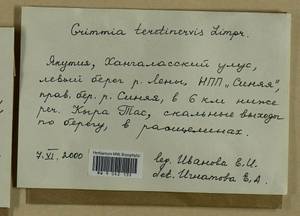 Grimmia teretinervis Limpr.
Якутия, Хангаласский улус,
левый берег р. Лены, НПП „Синяя",
прав. бер. р. Синяя, в 6 км ниже
реч. Кыра Тас, скальные выходы
по берегу, в расщелинах.
7.VI.2000
leg. Иванова Е.И.
det. Игнатова Е.А.